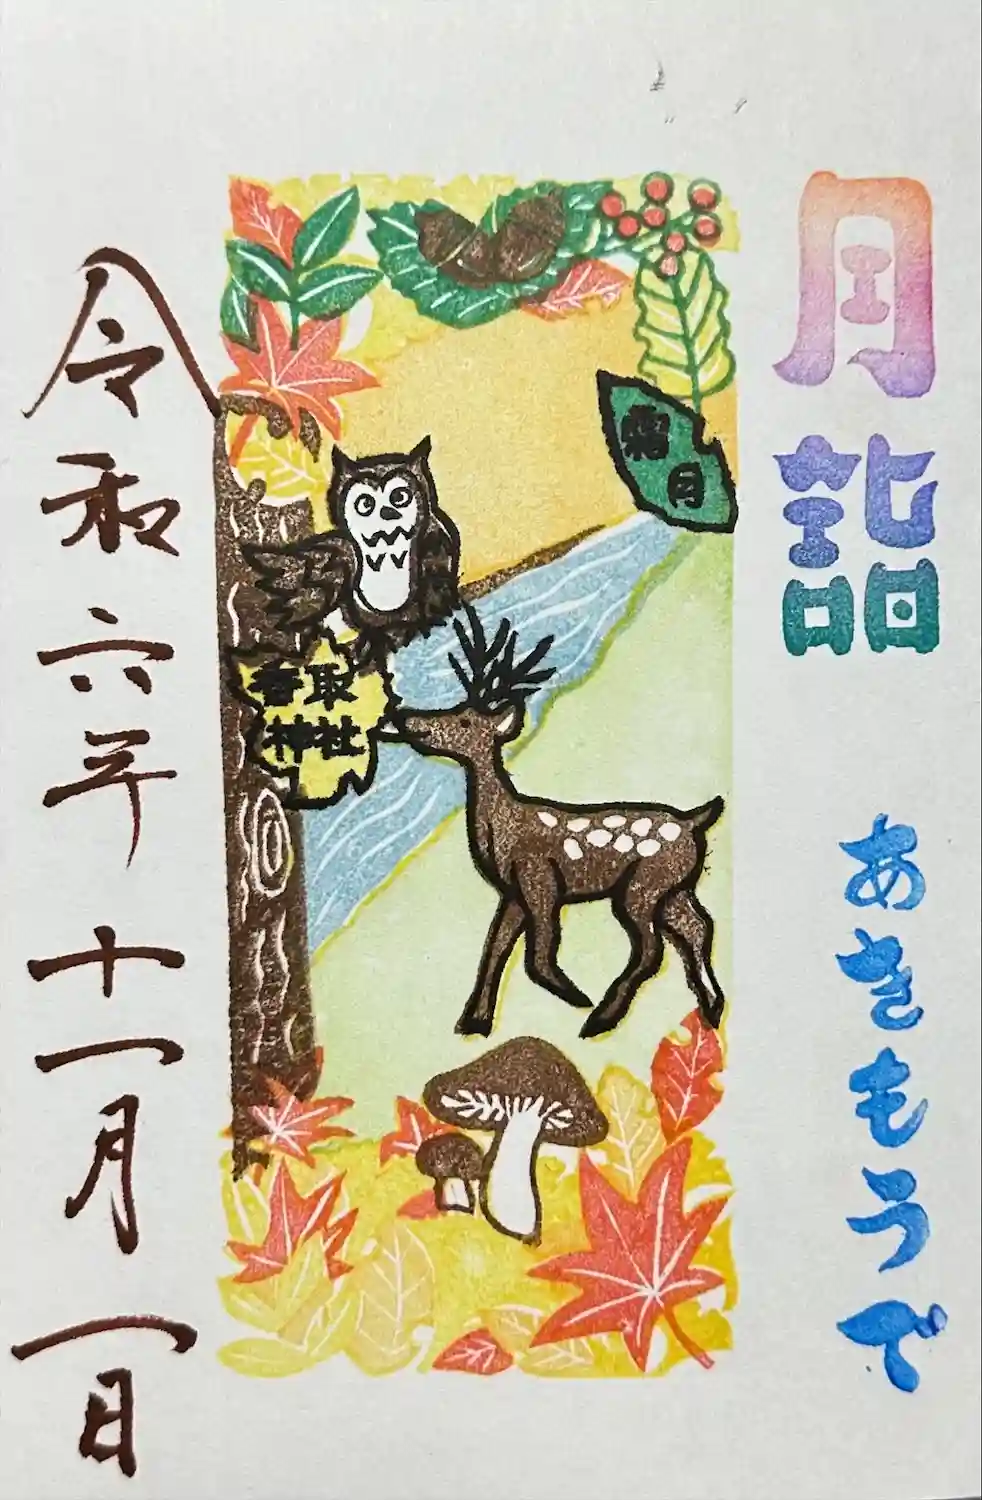 月詣
あきもうで
霜月
香取
神社
令和六年十一月一日